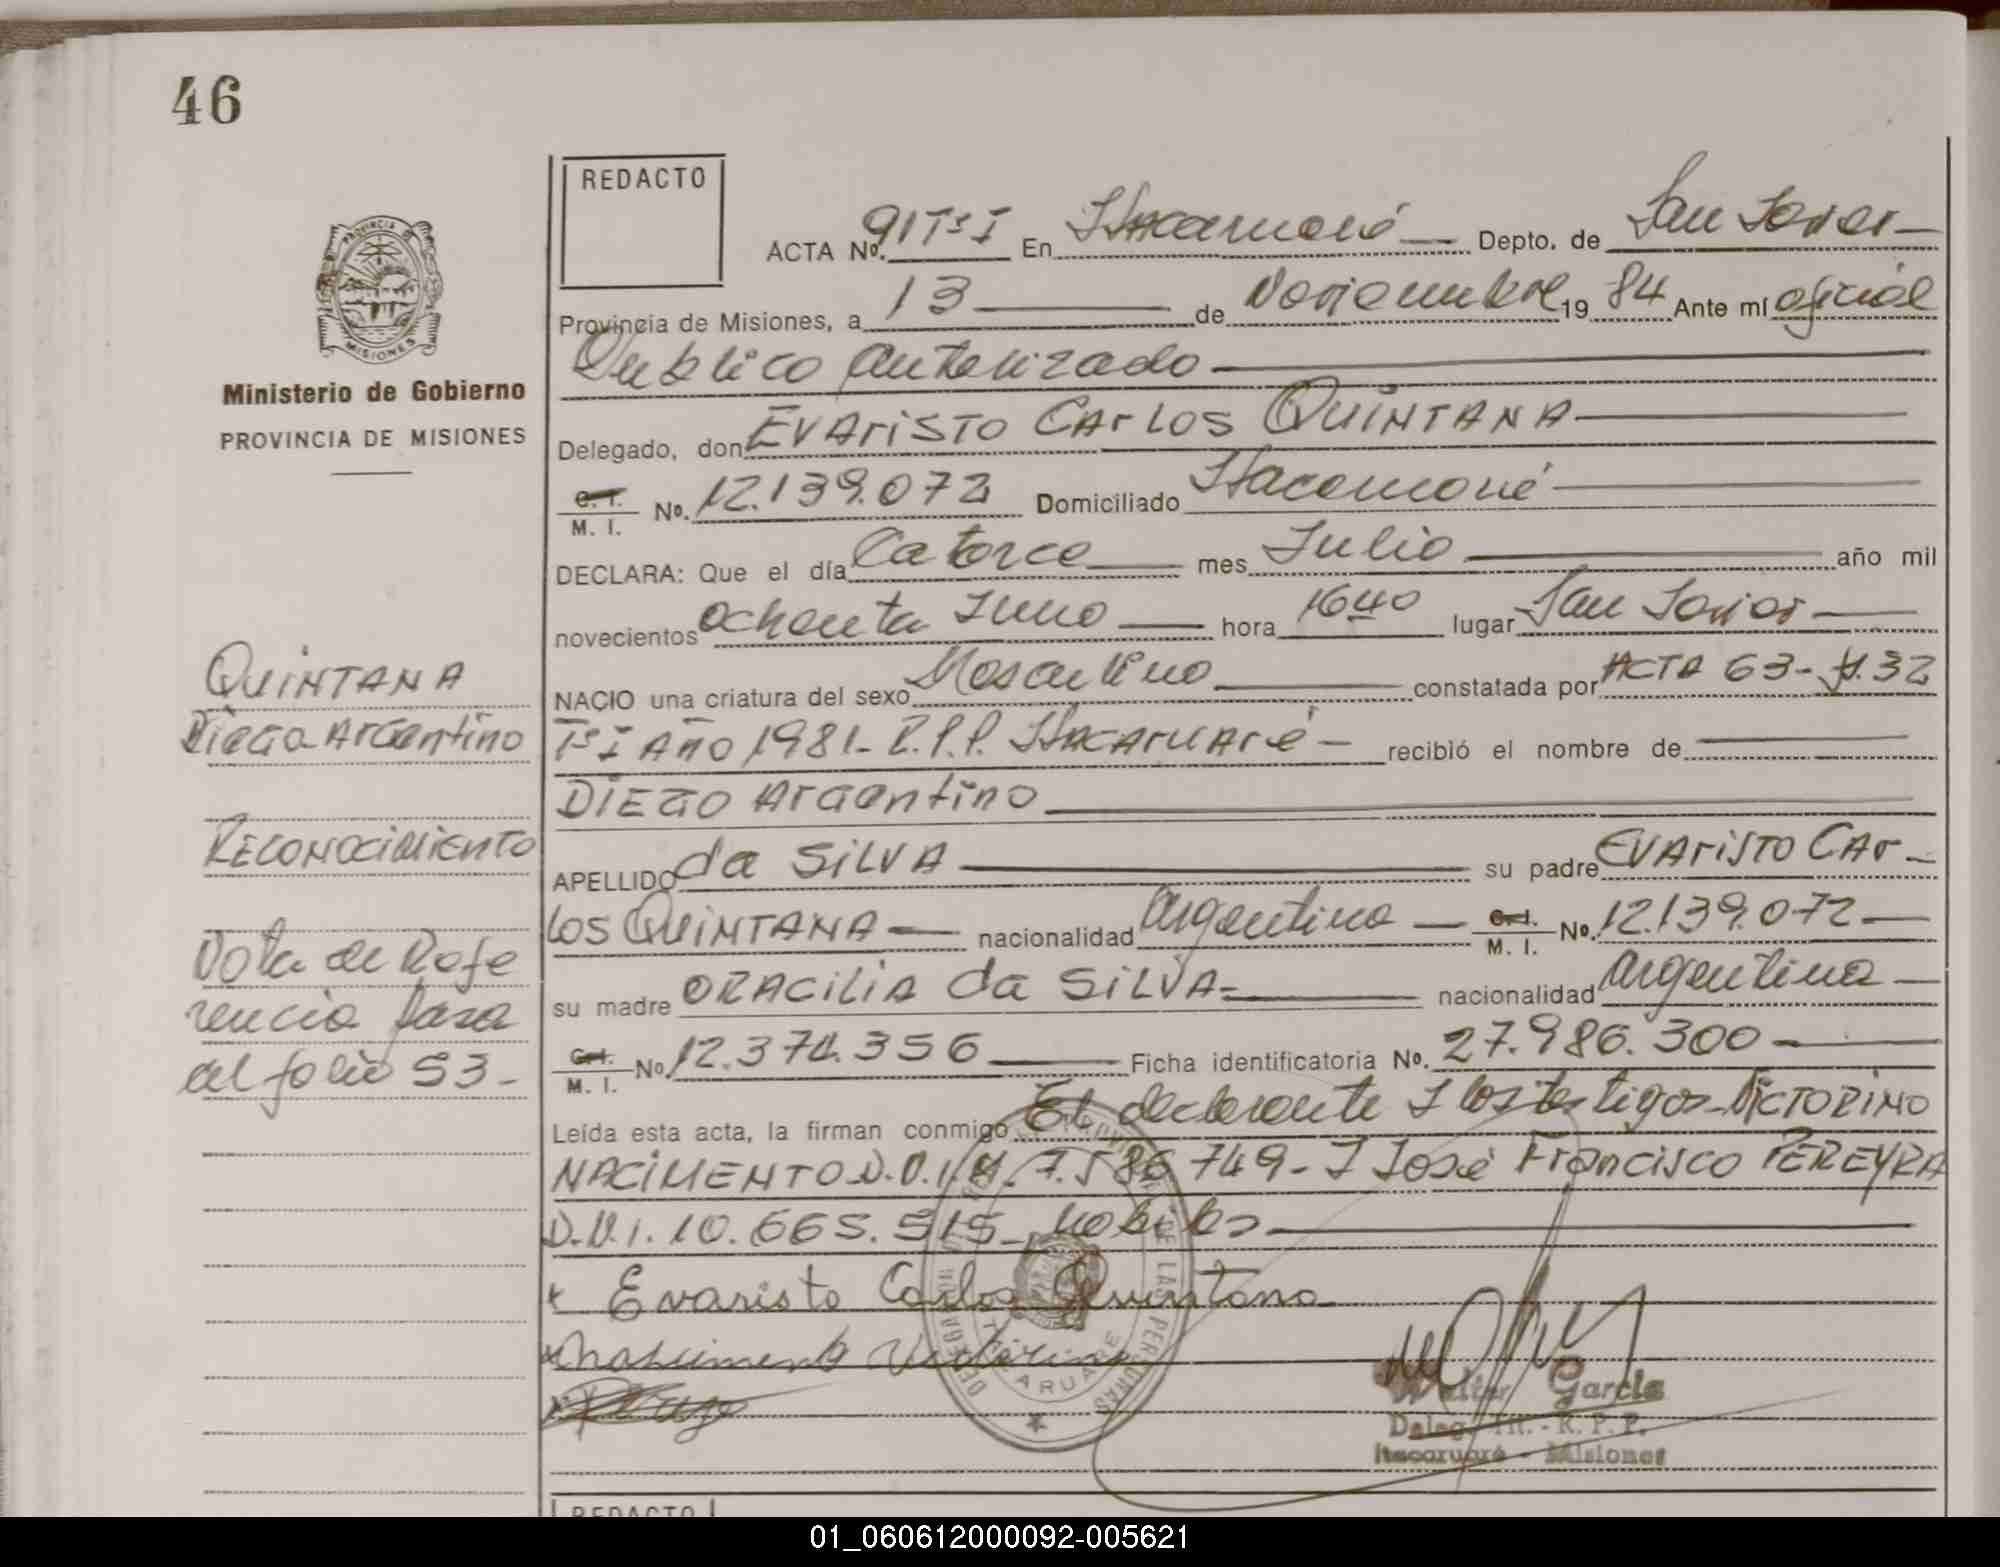 46
REDACTO
ACTA Nº. 91 Tº I En Itacaruaré Depto. de San Javier
Provincia de Misiones, a 13 de Noviembre 19 84 Ante mí oficial
Publico Autorizado
Delegado, don EVAriSTO CArLOS QUiNTANA
C. I. M. I. Nº. 12.139.072 Domiciliado Itacaruaré
DECLARA: Que el día Catorce mes Julio año mil
novecientos ochenta Iuno hora 1640 lugar San Javier
NACIO una criatura del sexo Masculino constatada por ACTA 63- fº.32
Tº I Año 1981- R.P.P. ITACARUARé recibió el nombre de
DIEGO ArGentino
APELLIDO da SiLVA su padre EVAriSTO CAr
LOS QUiNTANA nacionalidad Argentina C. I. M. I. Nº. 12.139.072
su madre ORACiLiA da SiLVA nacionalidad Argentina
C. I. M. I. Nº 12.374.356 Ficha identificatoria Nº. 27.986.300
Leída esta acta, la firman conmigo El declarante I los testigos VICTORINO
NACIMENTO D.N.I.Nº 7.586749- I José Francisco PEREYRA
D.N.I. 10.665.515 habiles
Evaristo Carlos Quintana
Nascimento Victorino
Walter García
Deleg. Tit. - R. P. P.
Itacaruaré - Misiones
PROVINCIA DE
MISIONES
Ministerio de Gobierno
PROVINCIA DE MISIONES
QUiNTANA
Diego ArGentino
RECONOCIMIENTO
Nota de Refe
rencia pasa
al folio 53-
DE LAS PERSONAS
REDACTO
01_060612000092-005621